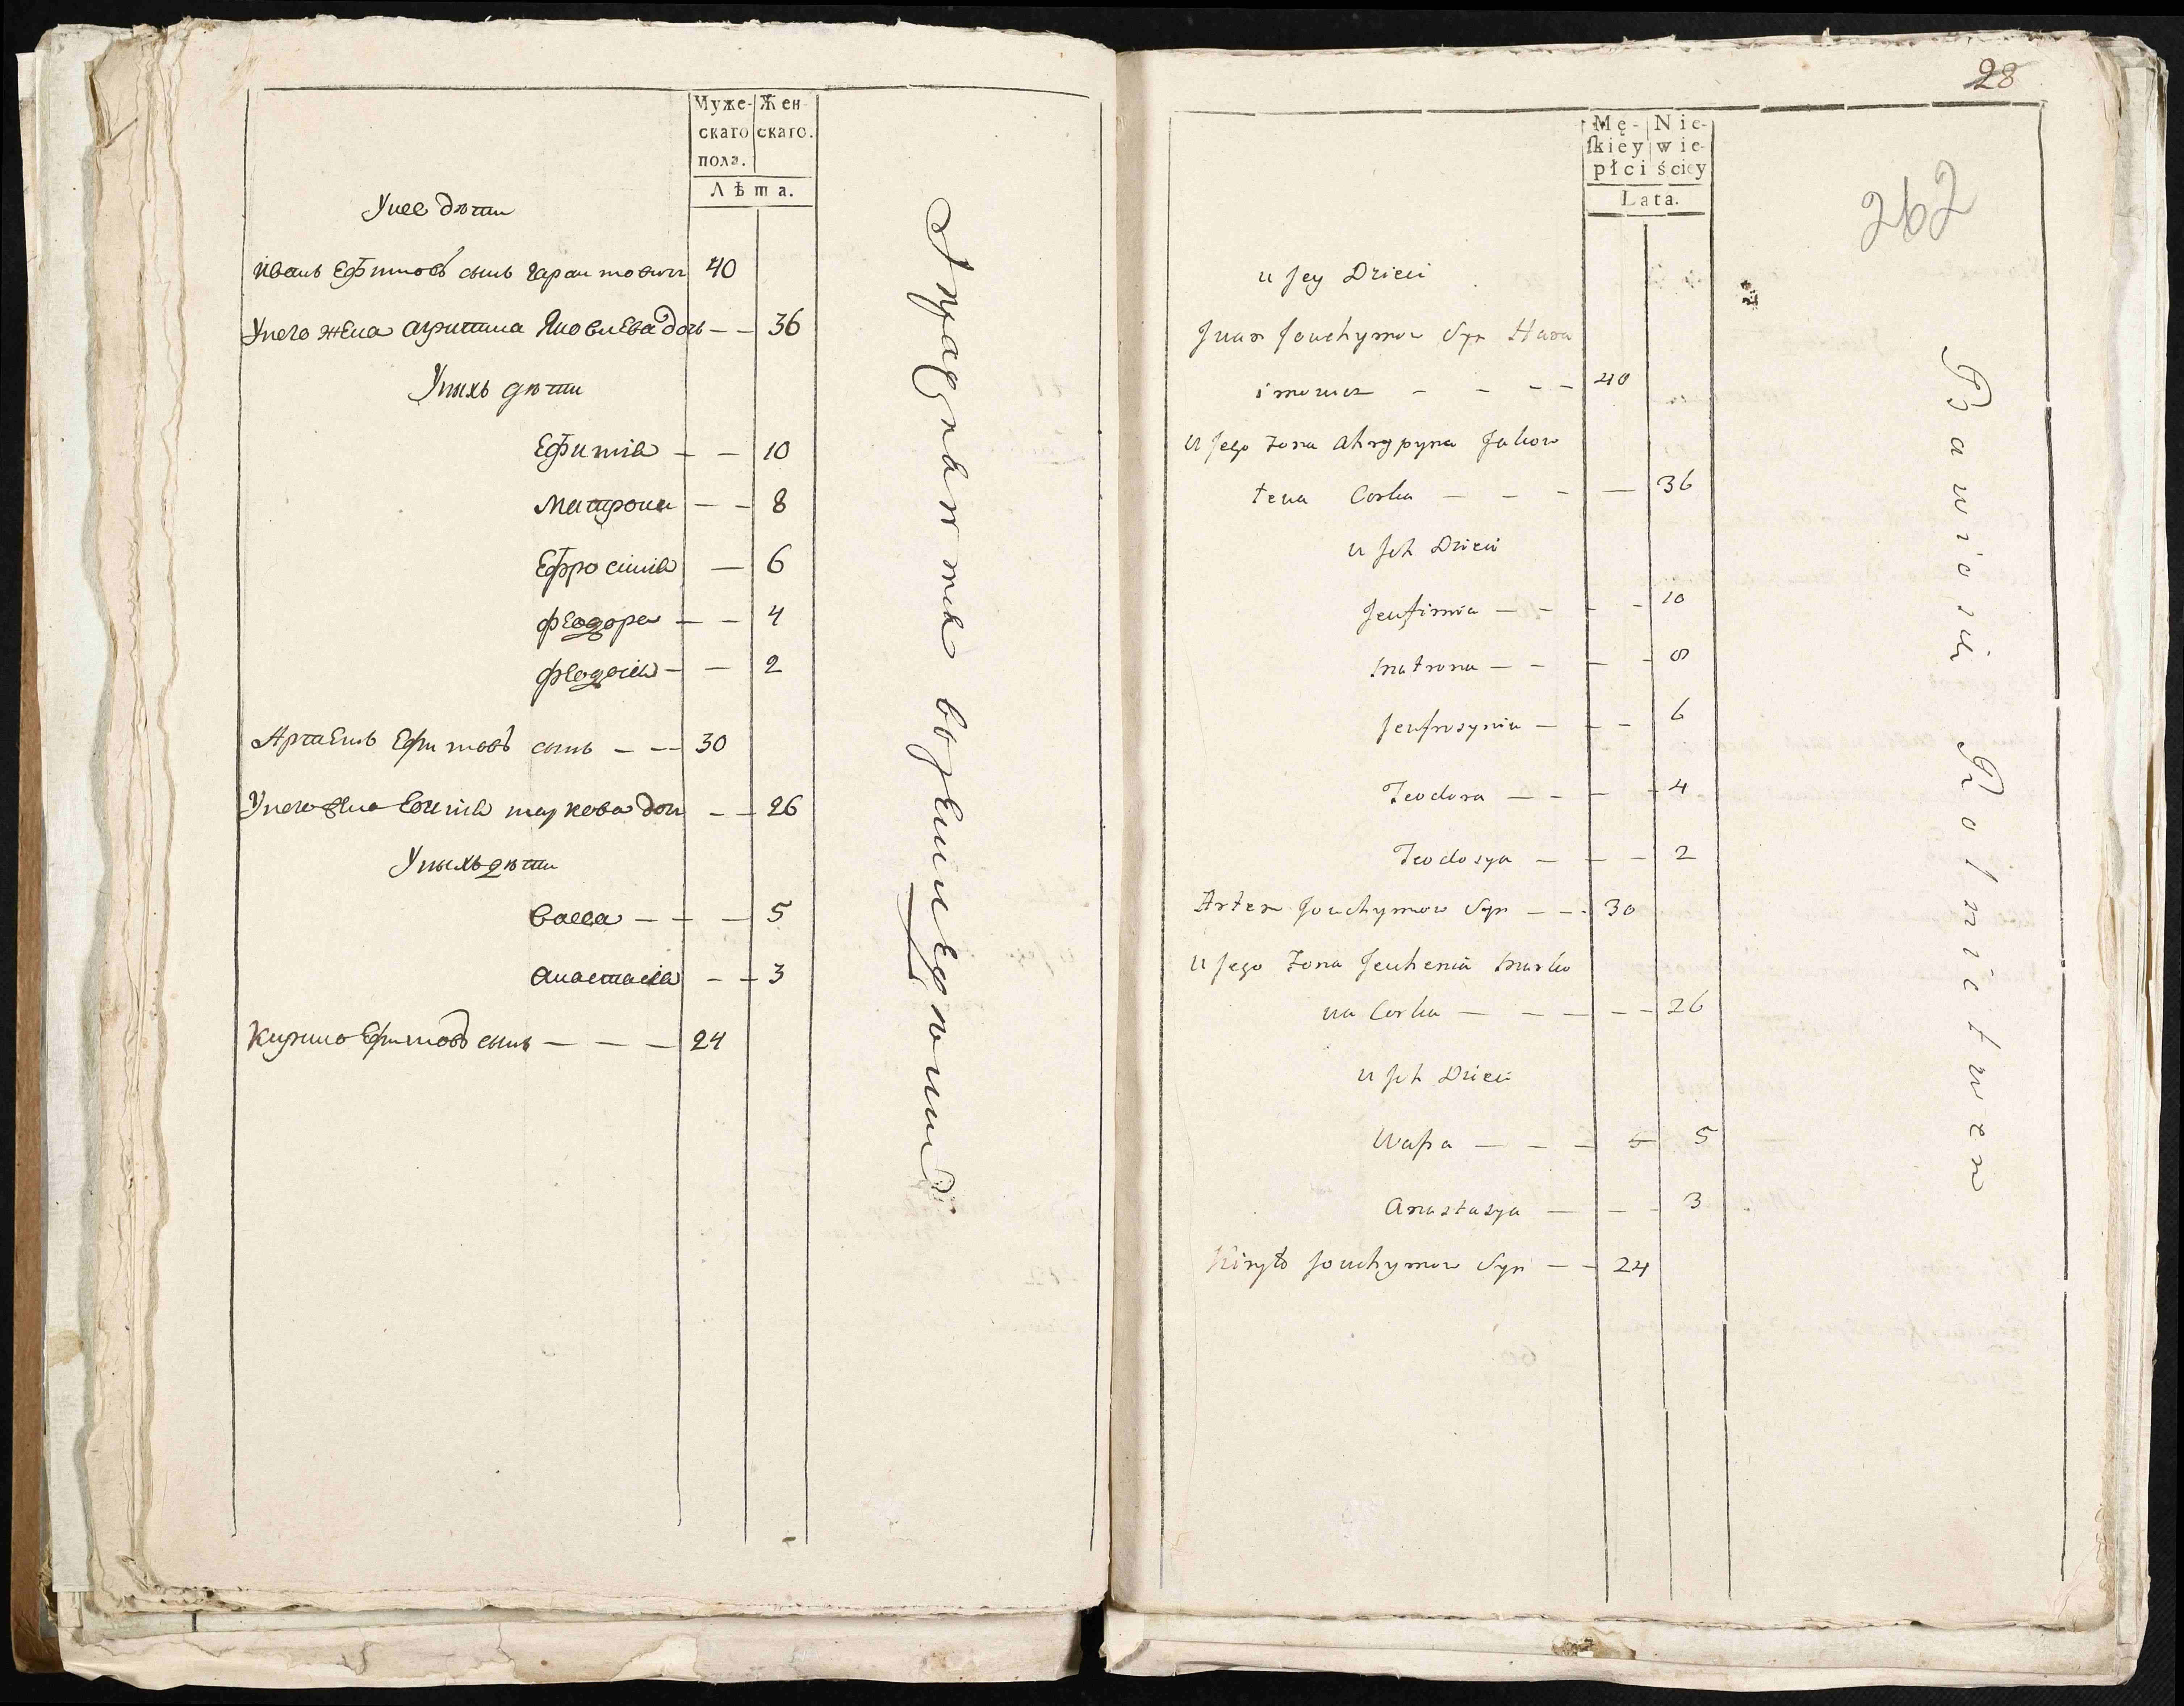 Муже- Жен
скаго скаго.
пола.
Лѣта.
Унее дѣти
Иванъ Ефимовъ сынъ 40
Унего жена агрипина Яковлева дочь — — 36
Унихъ дѣти
Ефимiя — — 10
Матрона — — 8
Ефросинiя — 6
Феодора — — 4
Феодосiя — — 2
Артемъ Ефимовъ сынъ — — 30
Унего жена Евгенiя маркова дочь — — 26
Унихъ дѣти
Васса — — — 5
Анастасiя — — 3
Кирило Ефимовъ сынъ — — — 24
Упражняется в
28
262
Mę- Nie-
ſkiey wie-
płci ściey
Lata.
u Jey Dzieci
Jwan Jouchymow Syn Hara
imowicz — — — — 40
u Jego Zona Ahrypyna Jakow
lewa Corka — — — — 36
u Jch Dzieci
Jeufimia — — — — 10
Matrona — — — — 8
Jeufrosynia — — — 6
Teodora — — — — 4
Teodosya — — — 2
Artem Jouchymow Syn — — 30
u Jego Zona Jeuhenia Marko
wa Corka — — — — — 26
u Jch Dzieci
Wassa — — — 5 5
Anastasya — — — 3
Kiryło Jouchymow Syn — — 24
Bawią się Rolnictwem